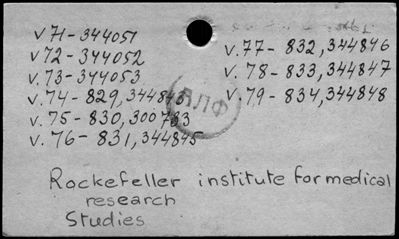 v 71-344051
v 72-344052
v. 73-344053
v. 74-829, 344843
v. 75-830, 300783
v. 76-831, 344845
v. 77- 832, 344846
v. 78-833, 344847
v. 79- 834, 344848
БЛФ
Rockefeller institute for medical
research
Studies